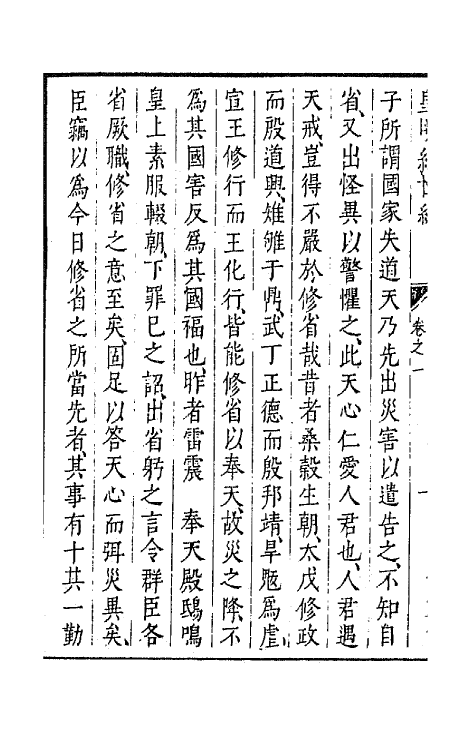 子所謂國家失道天乃先出災害以遣告之、不知自
省、又出怪異以警懼之、此天心仁愛人君也、人君遇
天戒、豈得不嚴於修省哉昔者桑榖生朝、太戊修政
而殷道興、雉雊于鼎、武丁正德而殷邦靖、旱魃爲虐、
宣王修行而王化行、皆能修省以奉天、故災之降、不
爲其國害反爲其國福也、昨者雷震　奉天殿鴟鳴
皇上素服輟朝、下罪已之詔、出省躬之言令群臣各
省厥職、修省之意至矣、固足以答天心而弭災異矣、
臣竊以爲今日修省之所當先者、其事有十其一勤
卷之一